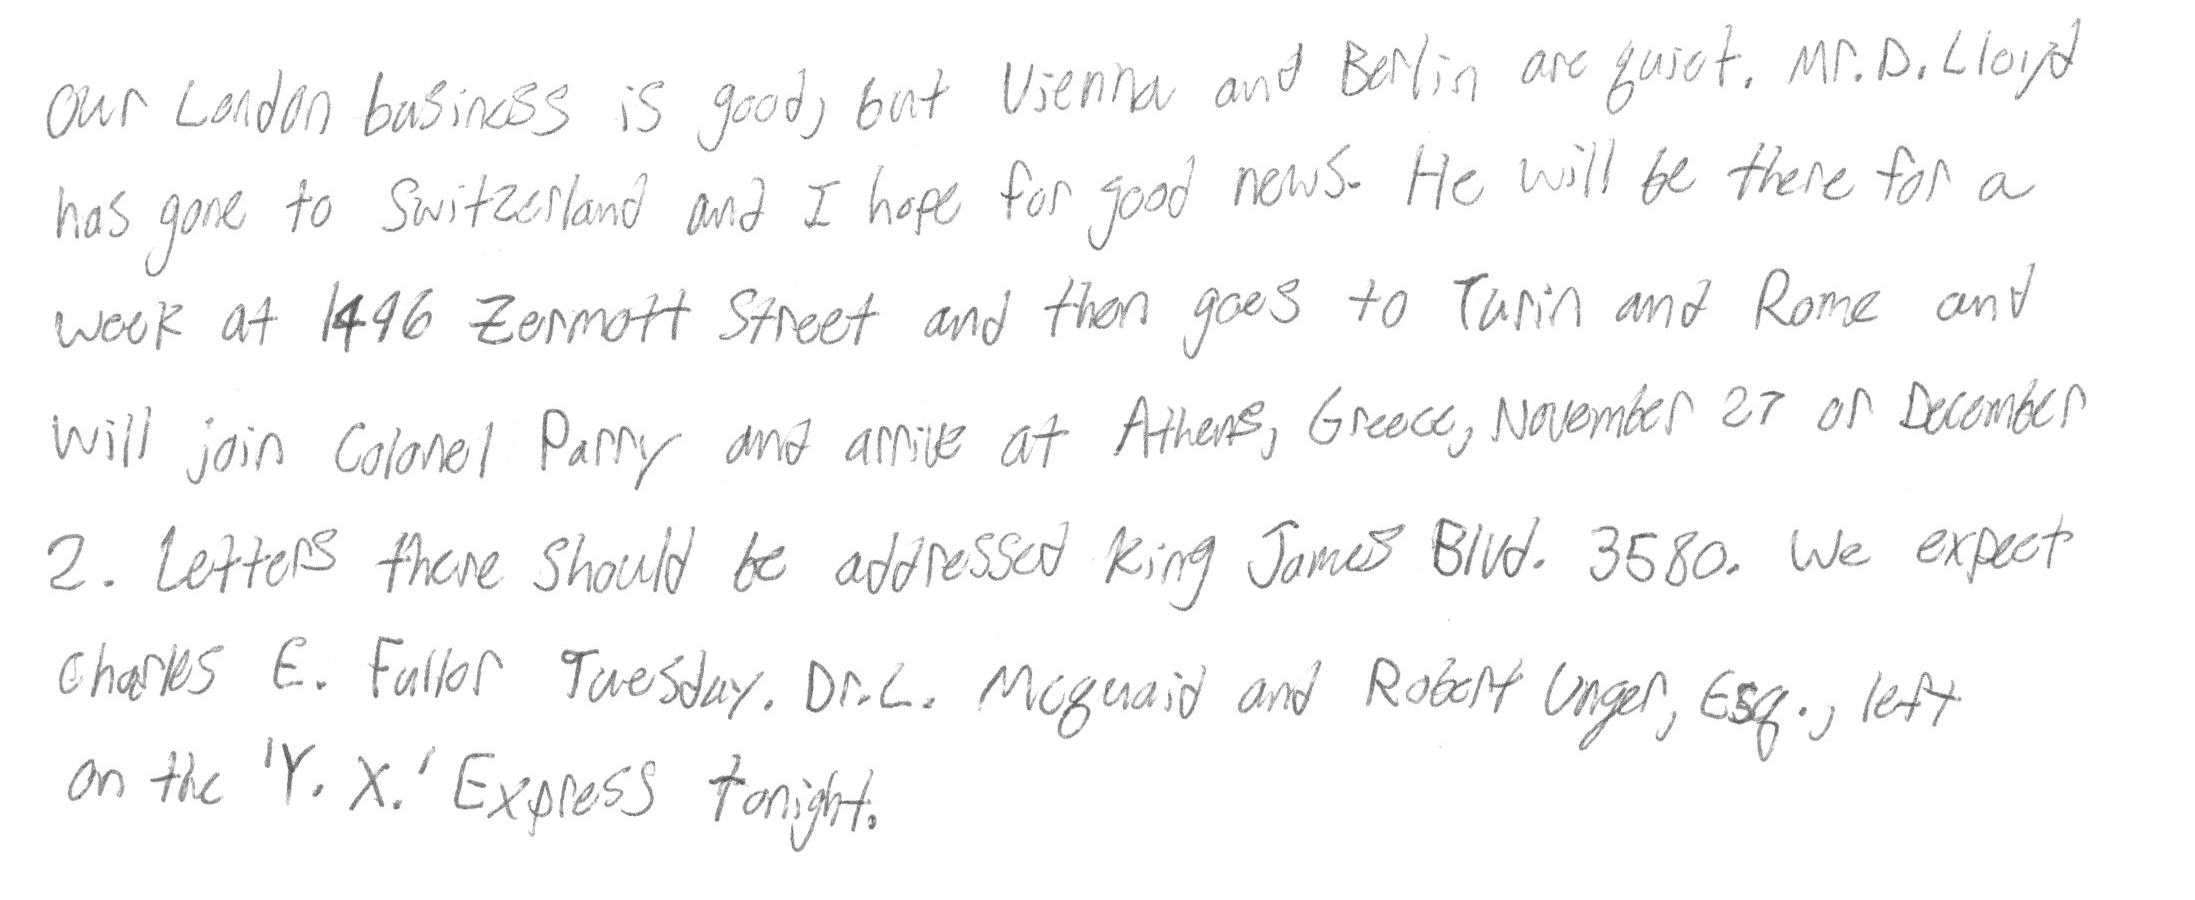 Our London business is good, but Vienna and Berlin are quiet. Mr. D. Lloyd
has gone to Switzerland and I hope for good news. He will be there for a
week at 1496 Zermott Street and then goes to Turin and Rome and
will join Colonel Parry and arrive at Athens, Greece, November 27 or December
2. Letters there should be addressed King James Blvd. 3580. We expect
Charles E. Fuller Tuesday. Dr. L. Mcquaid and Robert Unger, Esq., left
on the 'Y. X.' Express tonight.